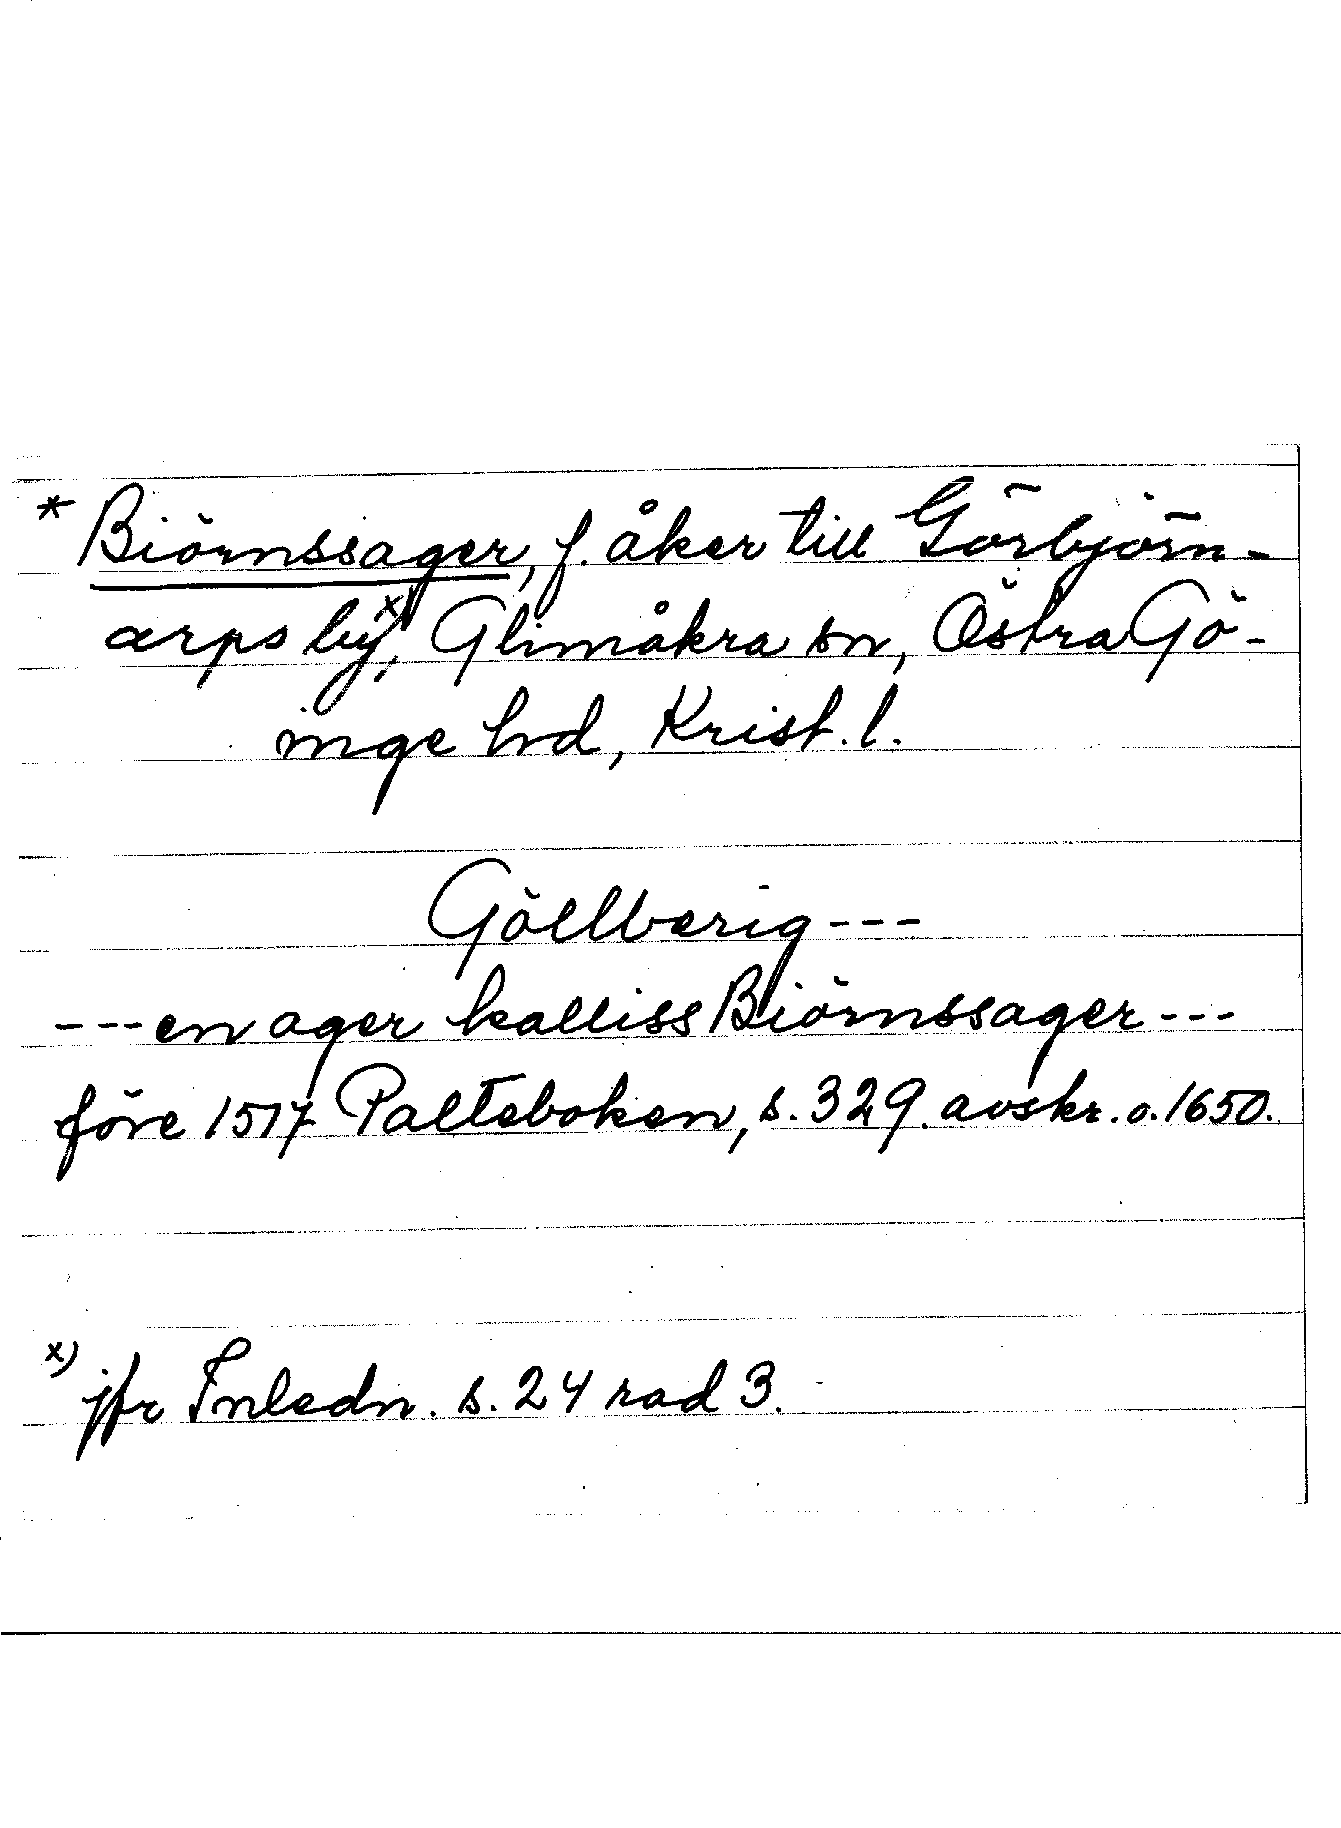 * Biörnssager, f. åker till Görbjörn-
arps by x), Glimåkra sn, Östra Gö-
inge hd, Krist. l.
Göllberig ---
--- en ager kalliss Biörnssager ---
före 1517 Palteboken, s. 329. avskr. o. 1650.
x) jfr Inledn. s. 24 rad 3.